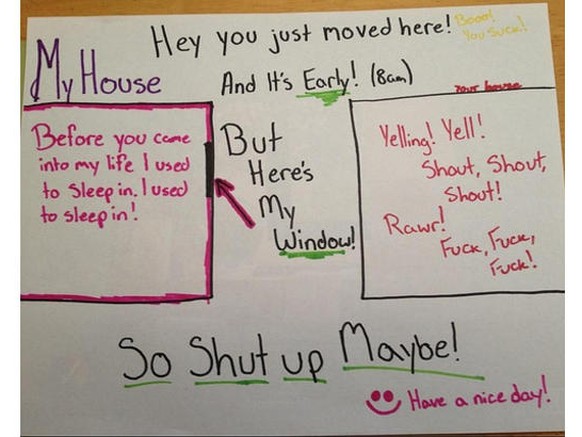 Hey you just moved here!
Booo!
You Suck!
My House
And It's Early! (8am)
Your house
Before you came
into my life I used
to sleep in. I used
to sleep in!
But
Here's
My
Window!
Yelling! Yell!
Shout, Shout,
Shout!
Rawr!
Fuck, Fuck,
Fuck!
So Shut up Maybe!
Have a nice day!